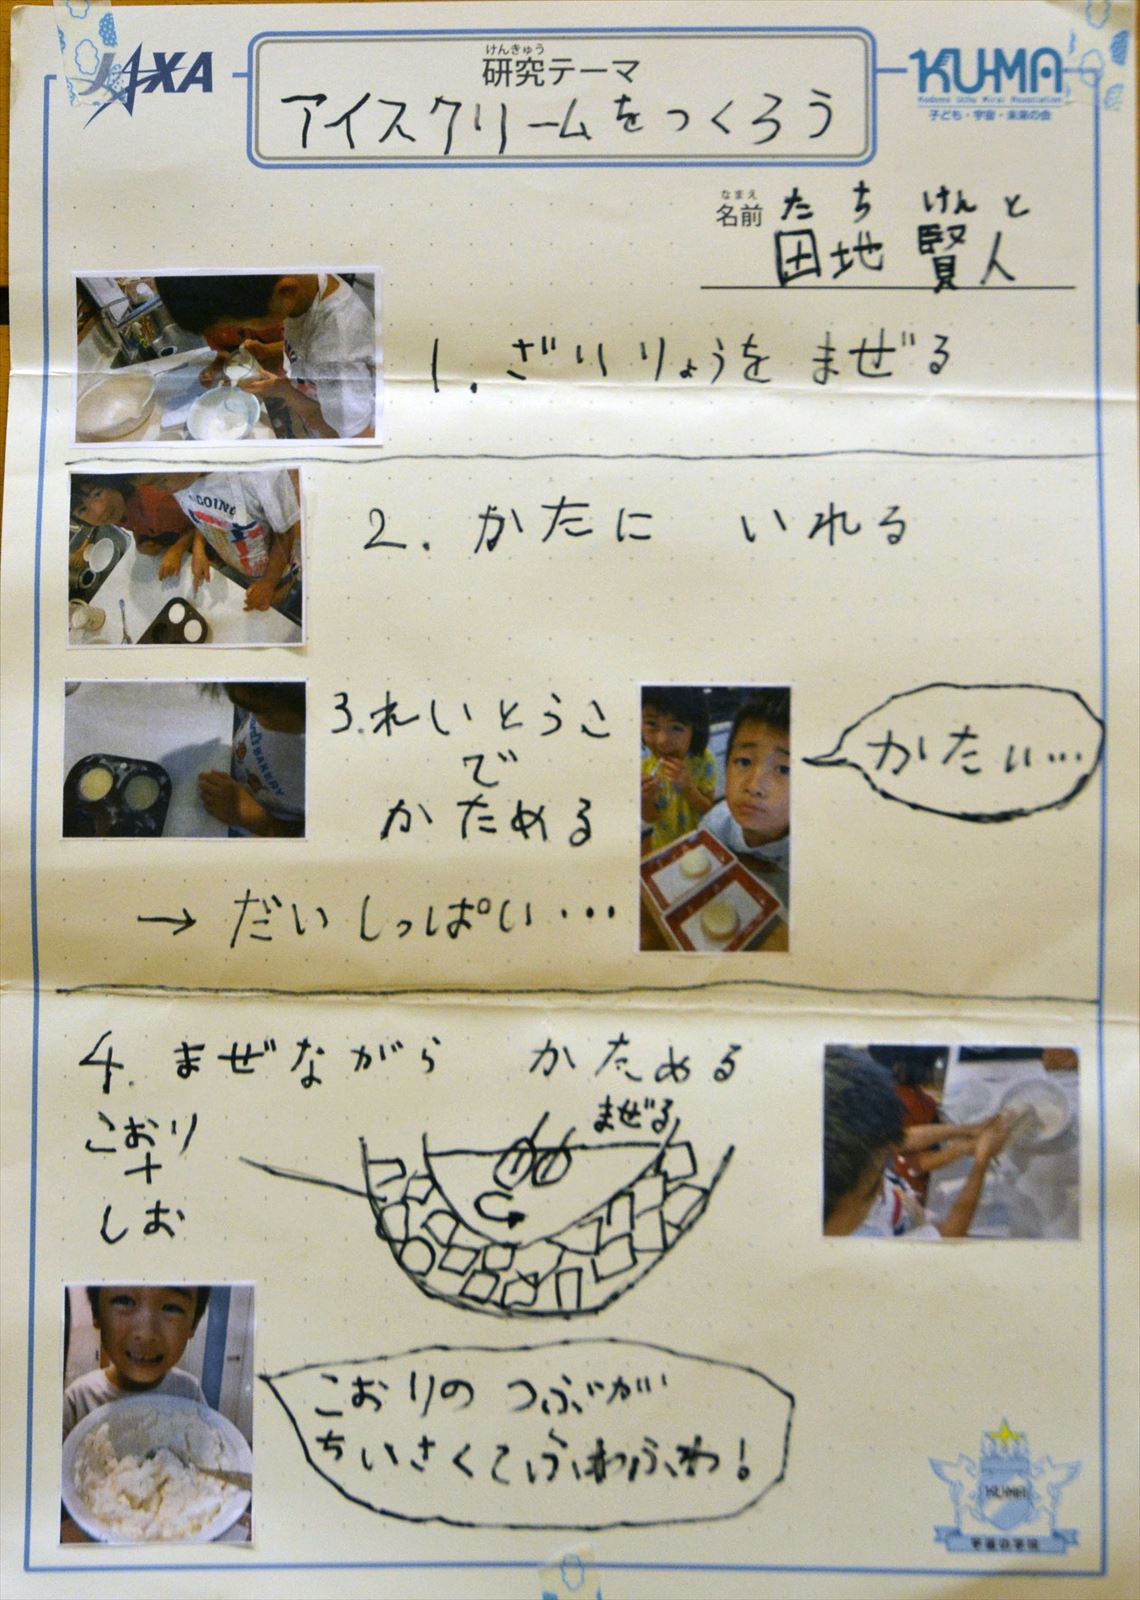 JAXA
けんきゅう
研究テーマ
アイスクリームをつくろう
KU-MA
Kodomo Uchu Mirai Association
子ども・宇宙・未来の会
なまえ
名前
たち けんと
田地 賢人
1. ざいりょうを まぜる
2. かたに いれる
3. れいとうこ
で
かためる
かたい…
→ だいしっぱい…
4. まぜながら かためる
こおり
+
しお
まぜる
こおりの つぶが
ちいさくてふわふわ!
KU-MA